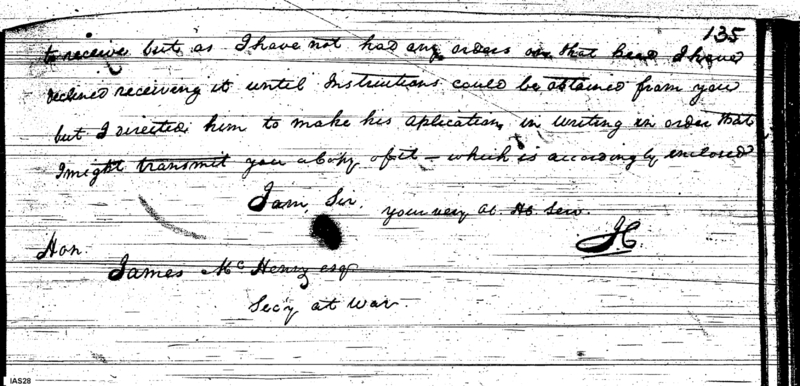 135
to receive but as I have not had any orders on that head I have
declined receiving it until Instructions could be obtained from you
but I directed him to make his aplication, in writing in order that
I might transmit you a Copy of it – which is accordingly enclosed
I am, Sir.
your very ob. Hb. Serv.
JH.
Hon.
James Mc Henry esqr
Secy at War.
IAS28